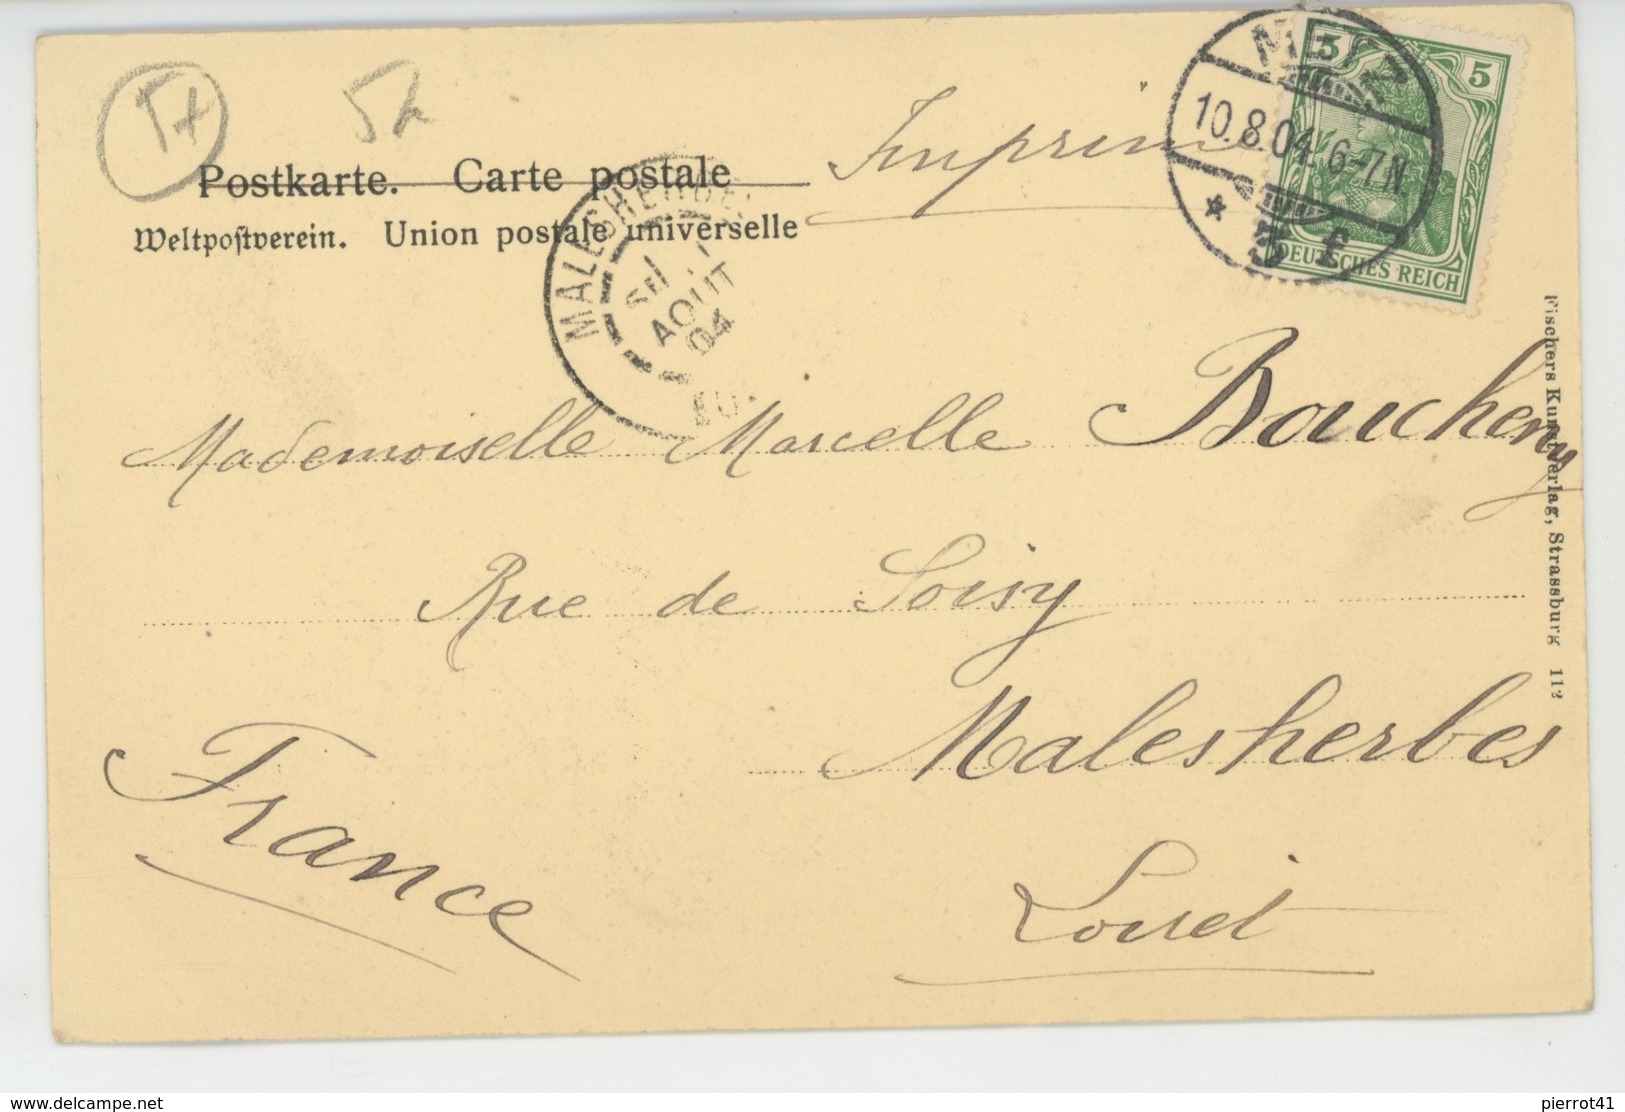 5x
Postkarte. Carte postale
Weltpostverein. Union postale universelle
Imprimé
METZ
10.8.04. 6-7N
* 5 f.
5 5
DEUTSCHES REICH
MALESHERBES
AOUT
04
Mademoiselle Marcelle Boucheny
Rue de Soisy
Malesherbes
Loiret
France
Fischers Kunstverlag, Strassburg 112
www.delcampe.net
pierrot41